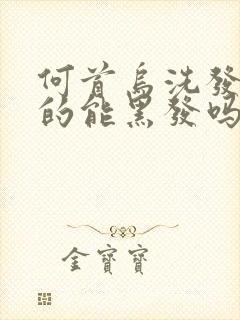 何首烏洗發
的能黑發吗
金寶寶